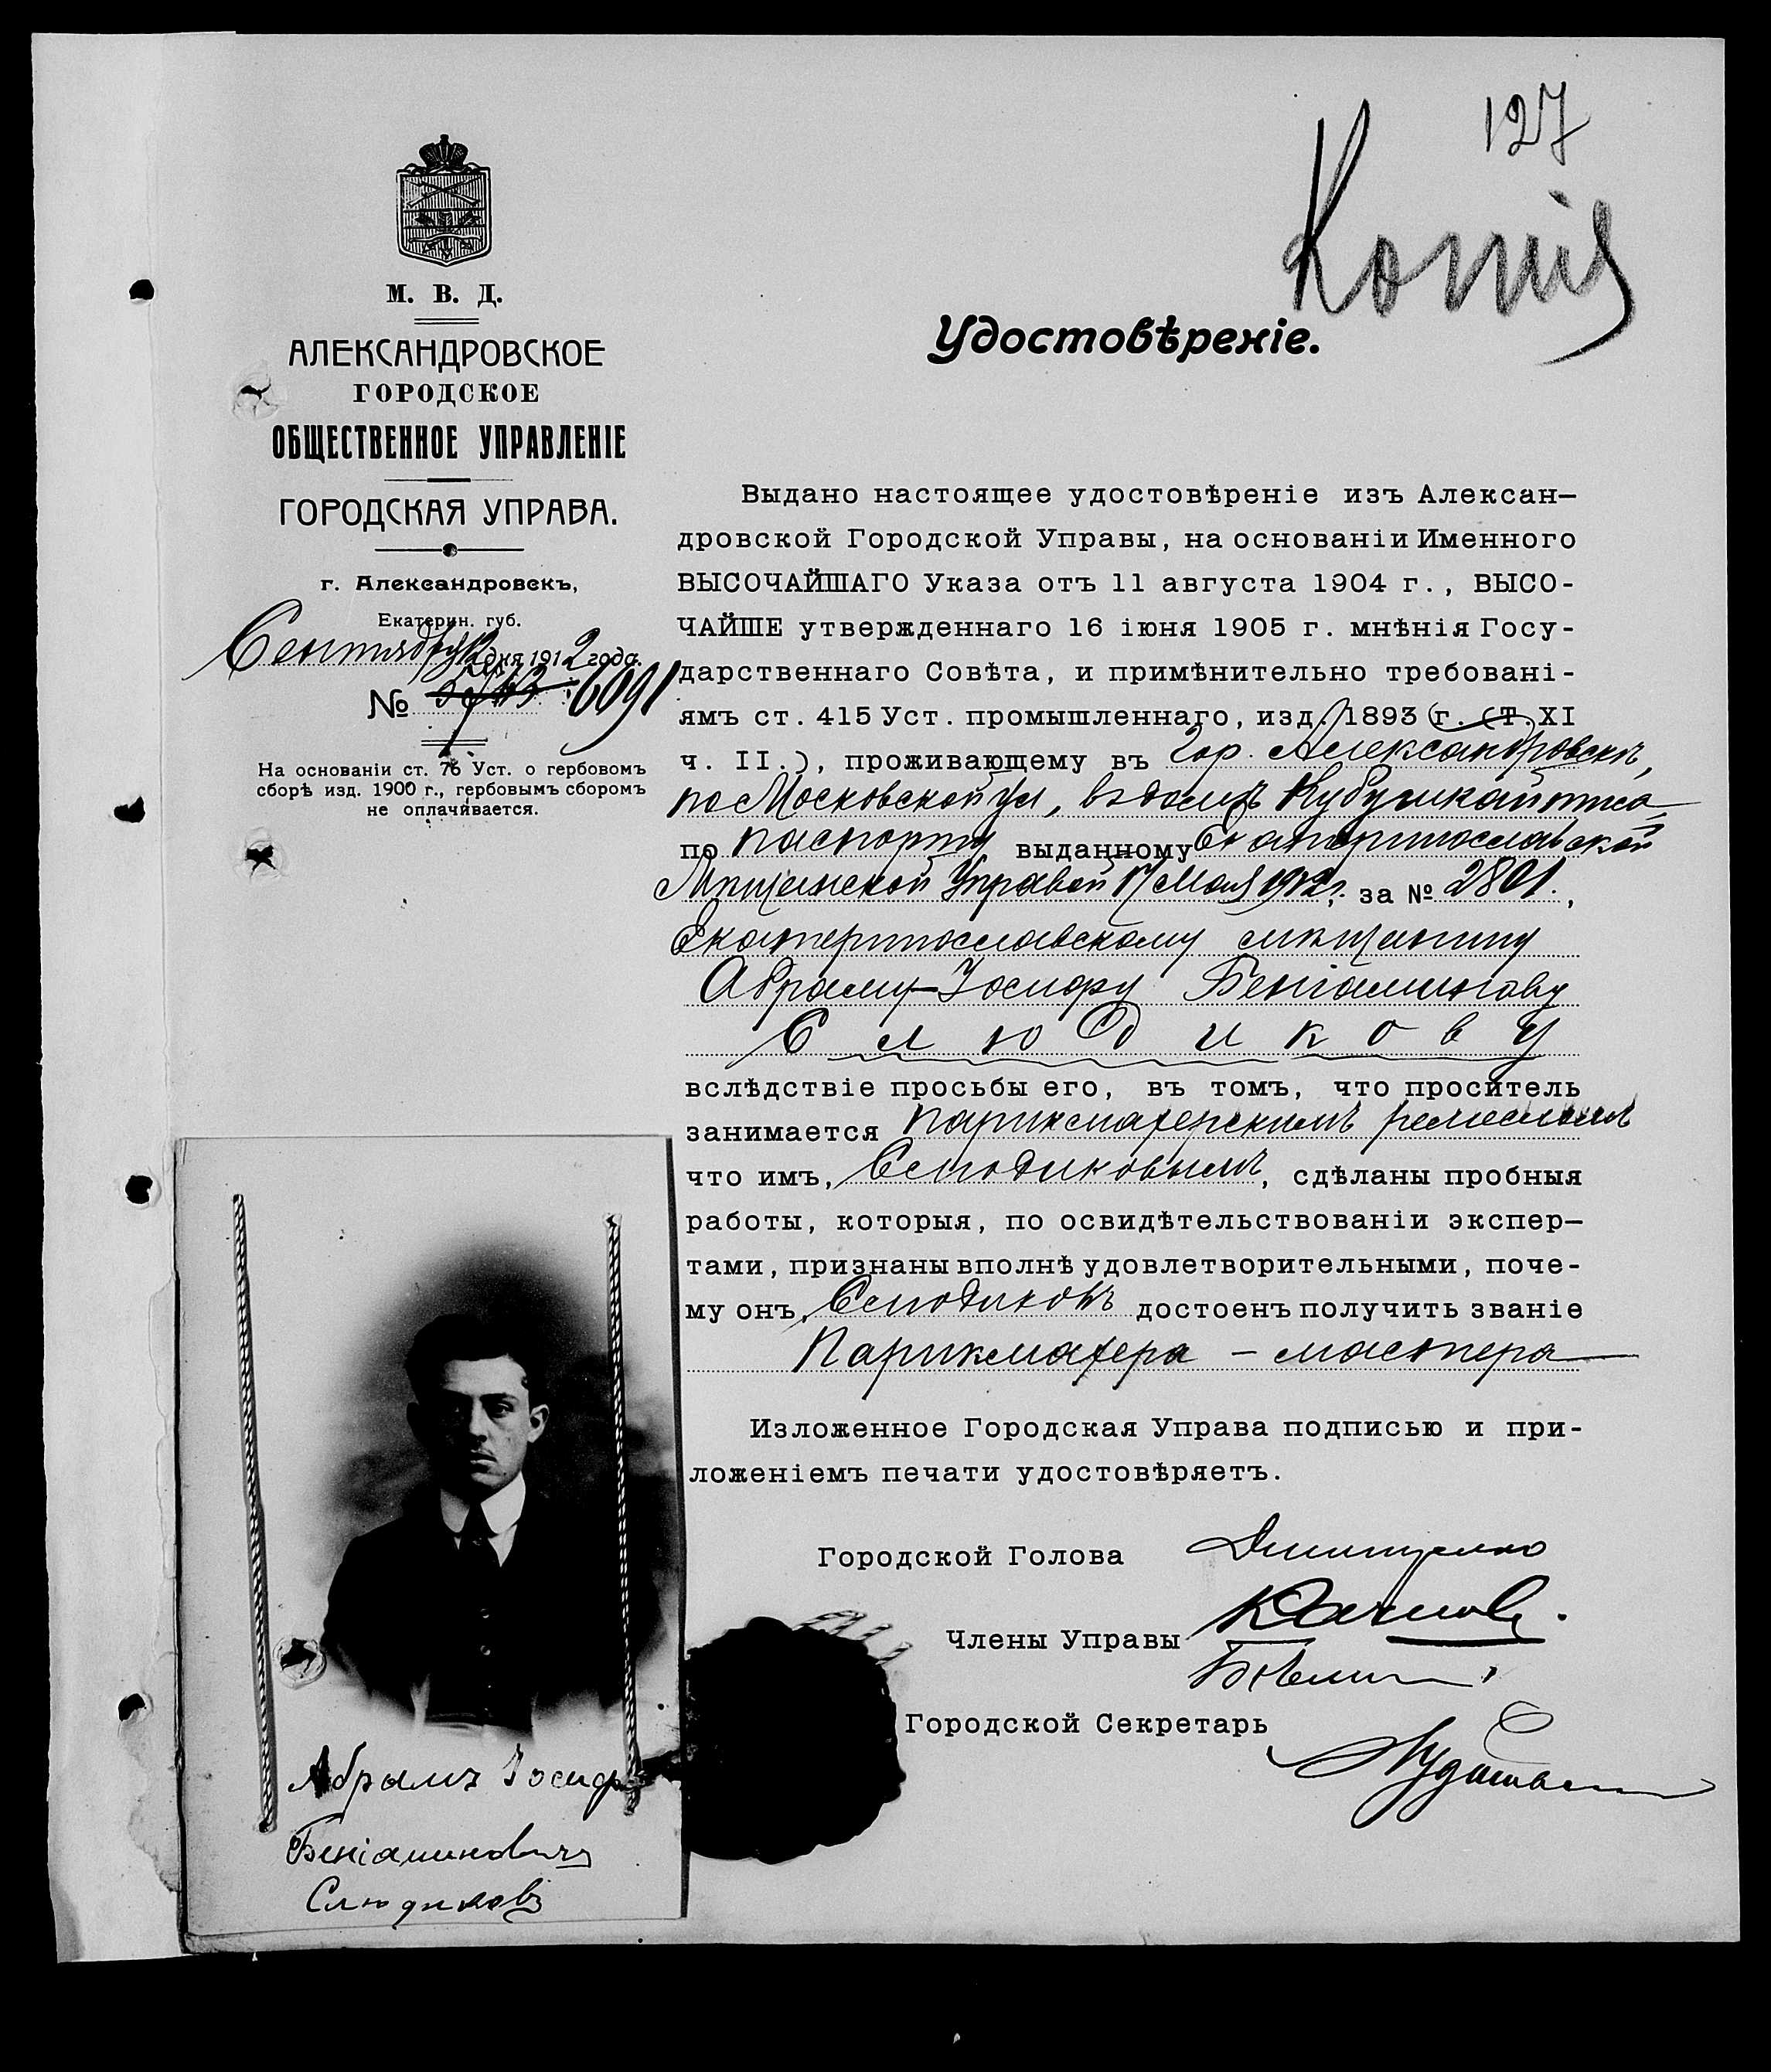 127
Копія
М. В. Д.
АЛЕКСАНДРОВСКОЕ
ГОРОДСКОЕ
ОБЩЕСТВЕННОЕ УПРАВЛЕНІЕ
ГОРОДСКАЯ УПРАВА.
г. Александровскъ,
Екатерин. губ.
Сентября 12 дня 1912 года.
№ 6091
На основаніи ст. 76 Уст. о гербовомъ
сборѣ изд. 1900 г., гербовымъ сборомъ
не оплачивается.
Удостовѣреніе.
Выдано настоящее удостовѣреніе изъ Алексан-
дровской Городской Управы, на основаніи Именного
ВЫСОЧАЙШАГО Указа отъ 11 августа 1904 г., ВЫСО-
ЧАЙШЕ утвержденнаго 16 іюня 1905 г. мнѣнія Госу-
дарственнаго Совѣта, и примѣнительно требовані-
ямъ ст. 415 Уст. промышленнаго, изд. 1893 г. (Т. XI
ч. II.), проживающему въ гор. Александровскѣ,
по Московской ул, въ домѣ
по паспорту выданному Екатеринославской
Мѣщанской Управой 17 Мая 1912 г. за № 2801.,
Екатеринославскому мѣщанину
Абраму-Іосифу Беніаминову
Слюдикову
вслѣдствіе просьбы его, въ томъ, что проситель
занимается парикмахерскимъ ремесломъ
что имъ, Слюдиковымъ, сдѣланы пробныя
работы, которыя, по освидѣтельствованіи экспер-
тами, признаны вполнѣ удовлетворительными, поче-
му онъ, Слюдиковъ достоенъ получить званіе
Парикмахера - мастера
Изложенное Городская Управа подписью и при-
ложеніемъ печати удостовѣряетъ.
Городской Голова
Члены Управы
Городской Секретарь
Абрамъ Іосифъ
Беніаминовичъ
Слюдиковъ